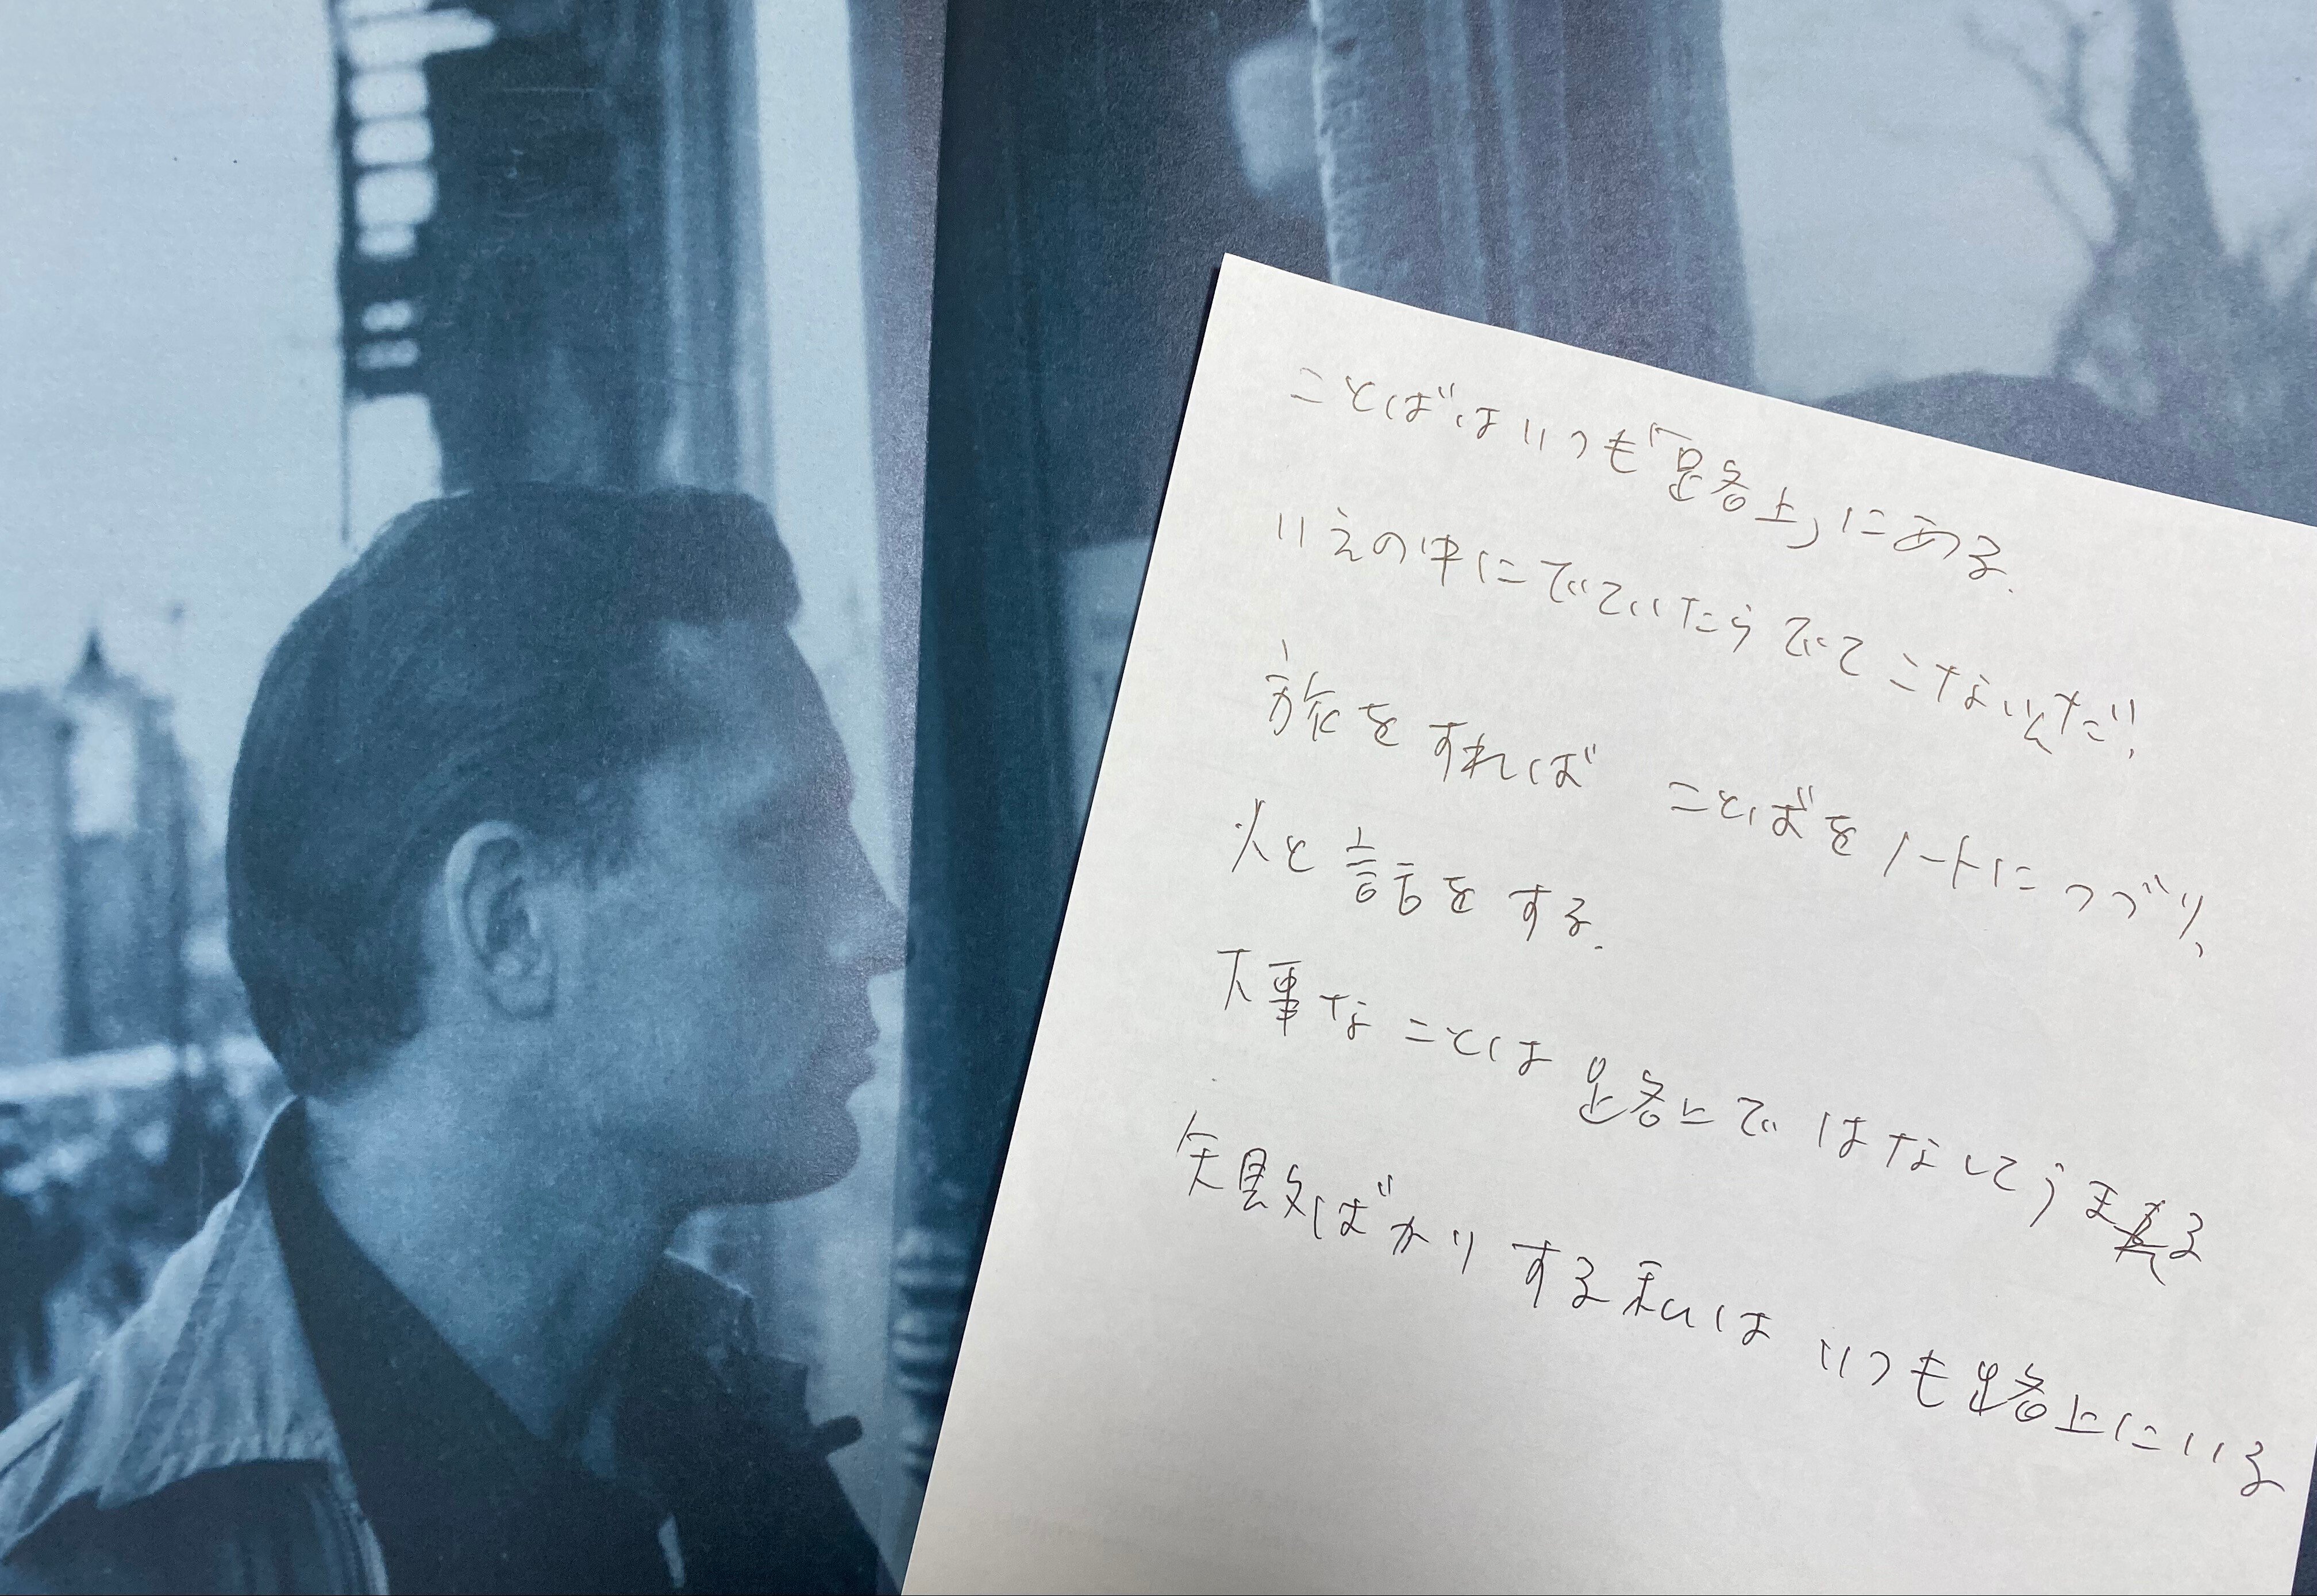 ことばはいつも「路上」にある.
いえの中にでていたらでてこないんだ!
旅をすれば ことばをノートにつづり、
人と話をする.
大事なことは 路上で はなしてうまる
矢数ばかりする私は いつも路上にいる